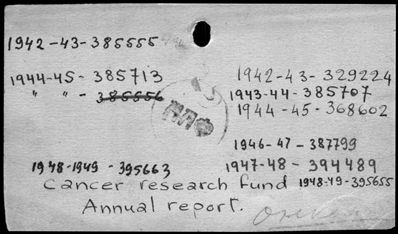 1942-43-385555
1944-45-385713
" " - 385556
1942-43-329224
1943-44-385707
1944-45-368602
ДЛФ
1946-47-387799
1948-1949-395663
1947-48-394489
Cancer research fund 1948-49-395655
Annual report.